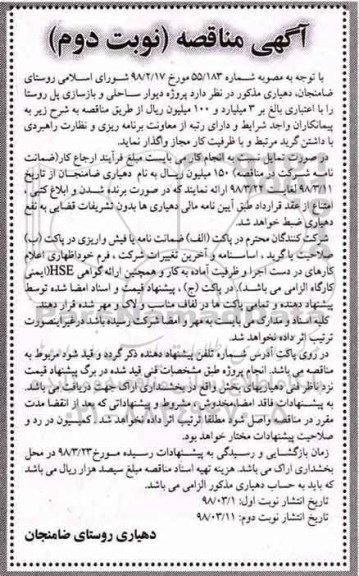 آگهی مناقصه (نوبت دوم)
با توجه به مصوبه شماره ۵۵/۱۸۳ مورخ ۹۸/۲/۱۷ شورای اسلامی روستای
ضامنجان، دهیاری مذکور در نظر دارد پروژه دیوار ساحلی و بازسازی پل روستا
را با اعتباری بالغ بر ۳ میلیارد و ۱۰۰ میلیون ریال از طریق مناقصه به شرح زیر به
پیمانکاران واجد شرایط و دارای رتبه از معاونت برنامه ریزی و نظارت راهبردی
با داشتن گرید مرتبط و با ظرفیت کار مجاز واگذار نماید.
در صورت تمایل نسبت به انجام کار می بایست مبلغ فرآیند ارجاع کار(ضمانت
نامه شرکت در مناقصه) ۱۵۰ میلیون ریال به نام دهیاری ضامنجان از تاریخ
۹۸/۳/۱۱ لغایت ۹۸/۳/۲۲ ارائه نمایند که در صورت برنده شدن و ابلاغ کتبی،
امتناع از عقد قرارداد طبق آیین نامه مالی دهیاری ها بدون تشریفات قضایی به نفع
دهیاری ضبط خواهد شد.
شرکت کنندگان محترم در پاکت (الف) ضمانت نامه یا فیش واریزی در پاکت (ب)
صلاحیت یا گرید ، اساسنامه و آخرین تغییرات شرکت ، فرم خوداظهاری اعلام
کارهای در دست اجرا و ظرفیت آماده به کار و همچنین ارائه گواهی HSE(ایمنی
کارگاه الزامی می باشد). در پاکت (ج) ، پیشنهاد قیمت و اسناد امضا شده توسط
پیشنهاد دهنده و تمامی پاکت ها در لفاف مناسب و لاک و مهر شده قرار دهند.
کلیه اسناد و مدارک می بایست به مهر و امضا شرکت رسیده باشد در غیر اینصورت
ترتیب اثر داده نخواهد شد.
در روی پاکت آدرس شماره تلفن پیشنهاد دهنده ذکر گردد و قید شود مربوط به
مناقصه می باشد. انجام پروژه طبق مشخصات فنی قید شده در برگ پیشنهاد قیمت
نزد ناظر فنی دهیاریهای بخش واقع در بخشداری اراک جهت دریافت می باشد.
به پیشنهادات فاقد امضا،مخدوش، مشروط و پیشنهاداتی که بعد از انقضا مدت
مقرر در مناقصه واصل شود مطلقا ترتیب اثر داده نخواهد شد. کمیسیون در رد و
صلاحیت پیشنهادات مختار خواهد بود.
زمان بازگشایی و رسیدگی به پیشنهادات رسیده مورخ۹۸/۳/۲۳ در محل
بخشداری اراک می باشد. هزینه تهیه اسناد مناقصه مبلغ سیصد هزار ریال می باشد
که باید به حساب دهیاری مذکور الزامی می باشد.
تاریخ انتشار نوبت اول: ۹۸/۰۳/۱
تاریخ انتشار نوبت دوم: ۹۸/۰۳/۱۱
دهیاری روستای ضامنجان